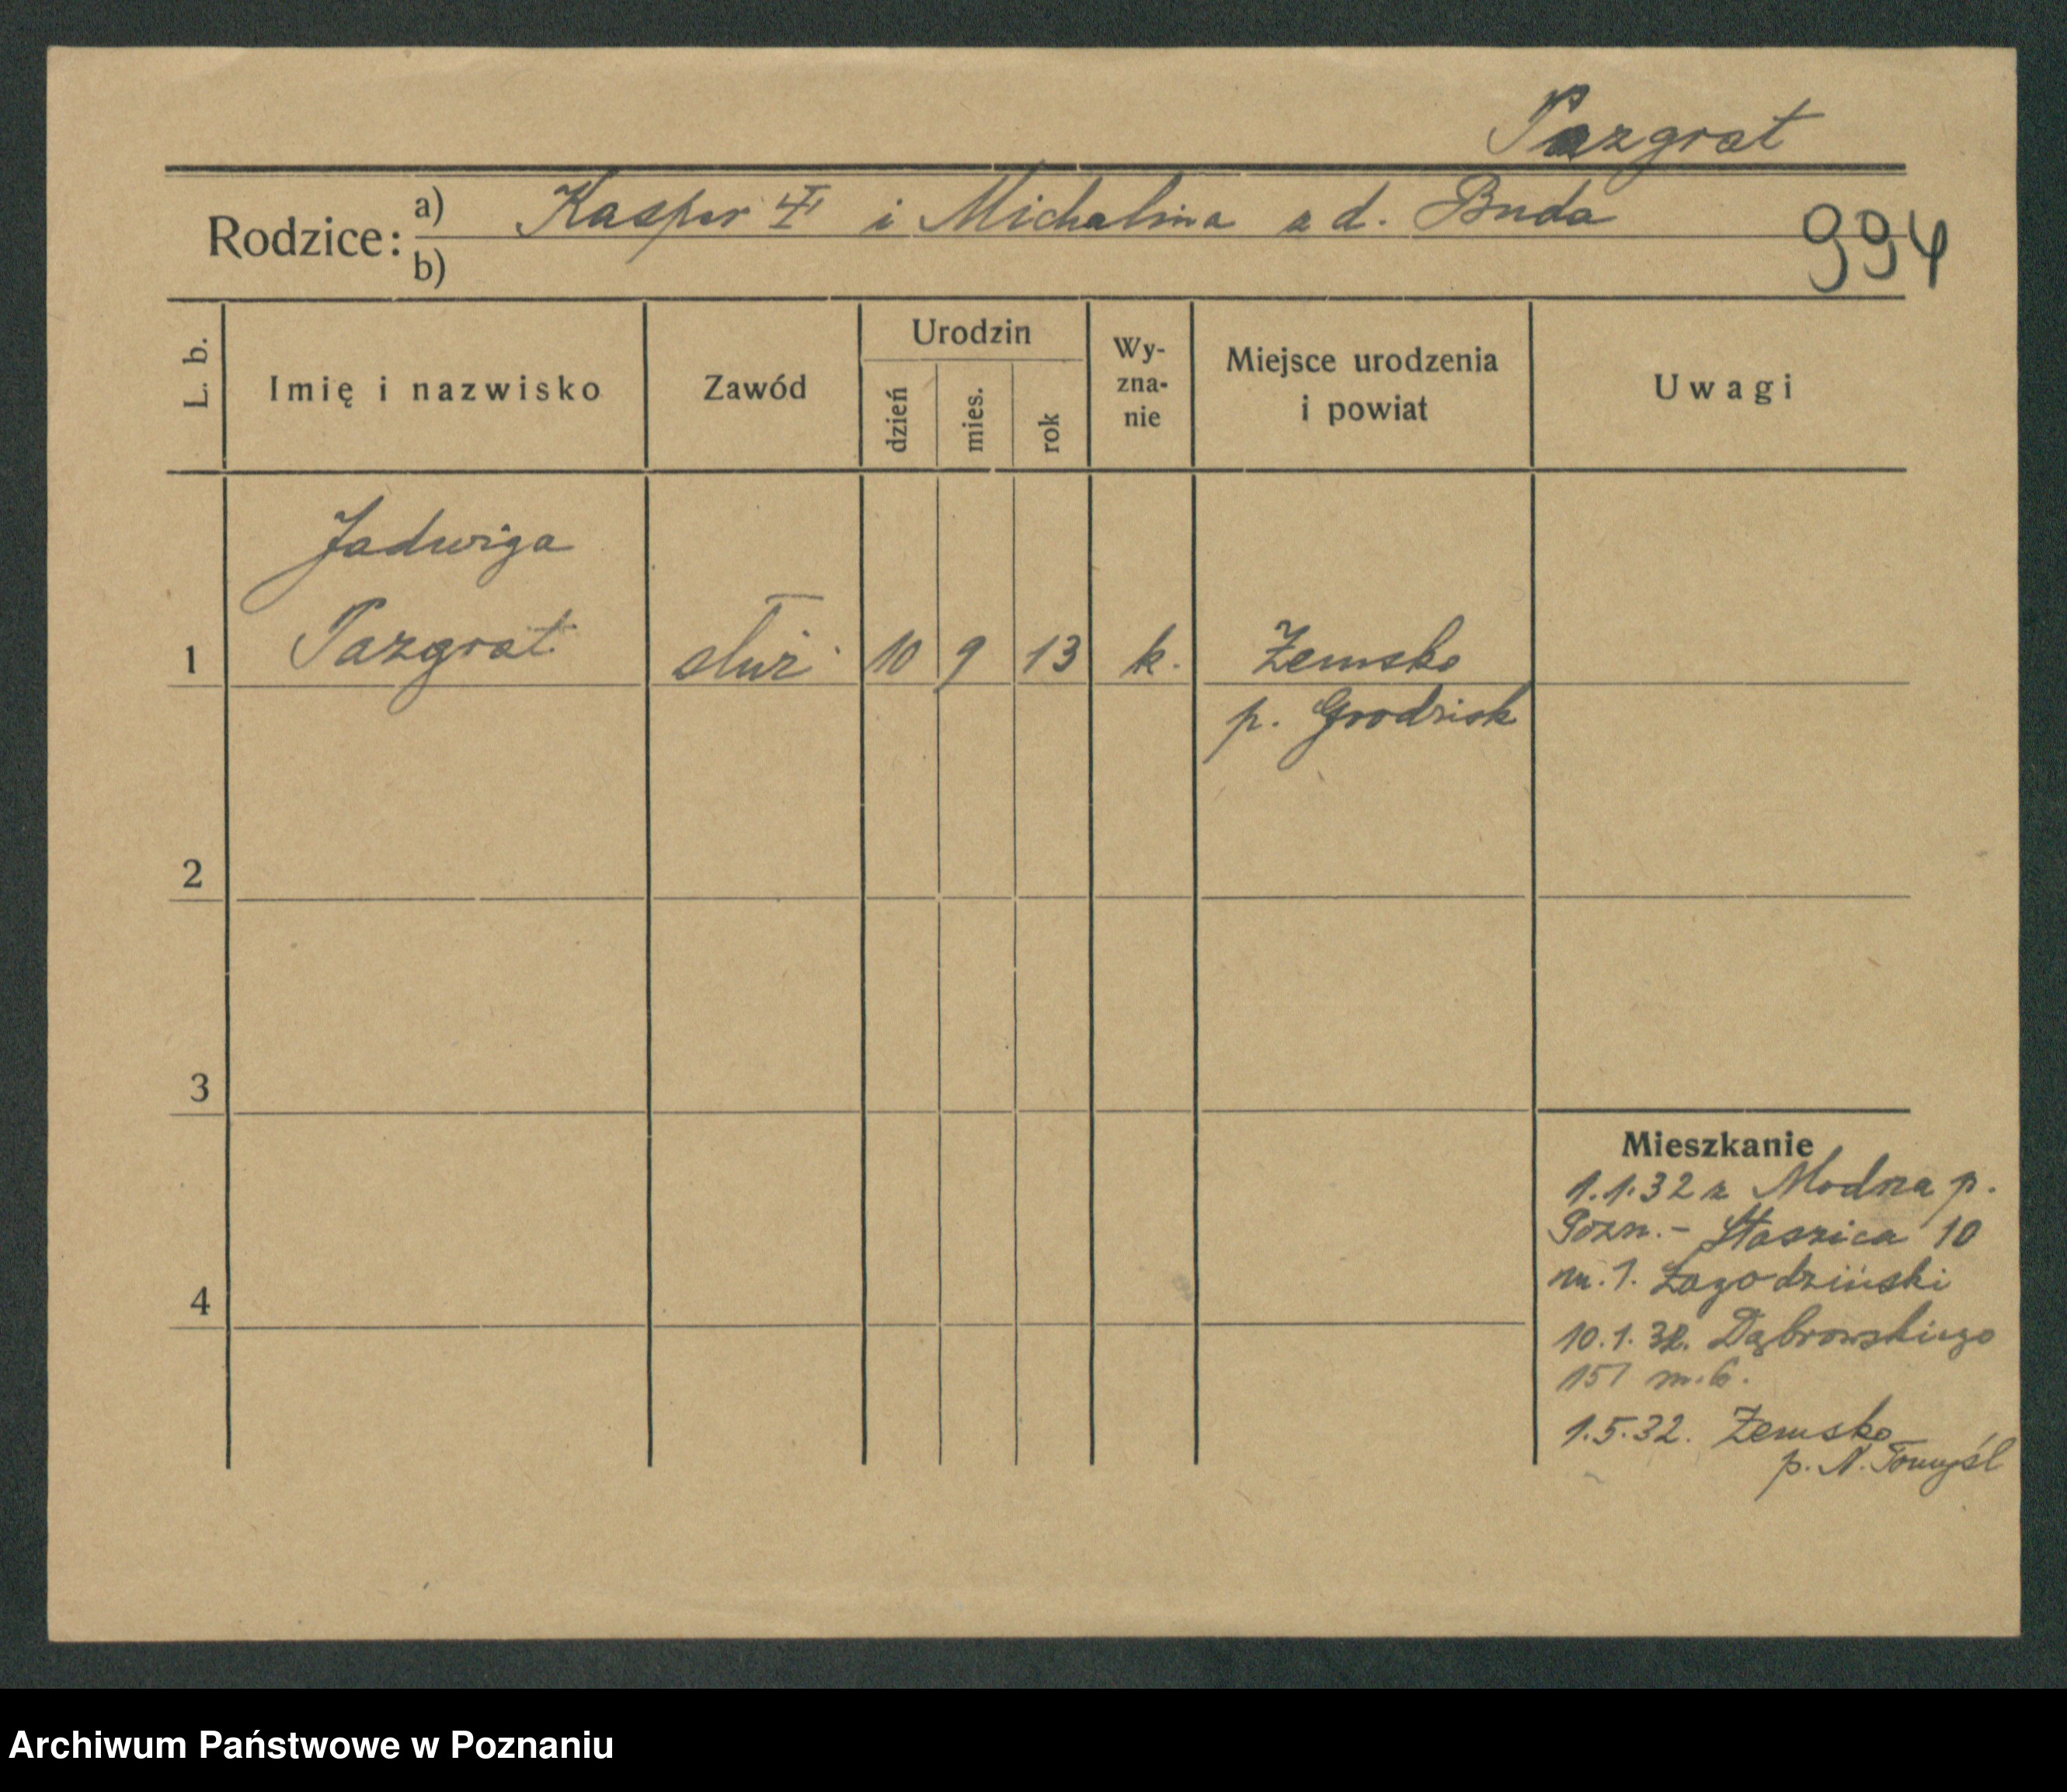 Pazgrat
Rodzice: a) Kasper i Michalina z d. Buda
b)
994
L. b.
Imię i nazwisko
Zawód
Urodzin
dzień
mies.
rok
Wy-
zna-
nie
Miejsce urodzenia
i powiat
Uwagi
Jadwiga
1 Pazgrat służ 10 9 13 k. Zemsko
p. Grodzisk
2
3
4
Mieszkanie
1.1.32 z Modrza p.
Pozn. - Staszica 10
m. 1. Łagodziński
10.1.32. Dąbrowskiego
151 m. 6.
1.5.32. Zemsko
p. N. Tomyśl
Archiwum Państwowe w Poznaniu